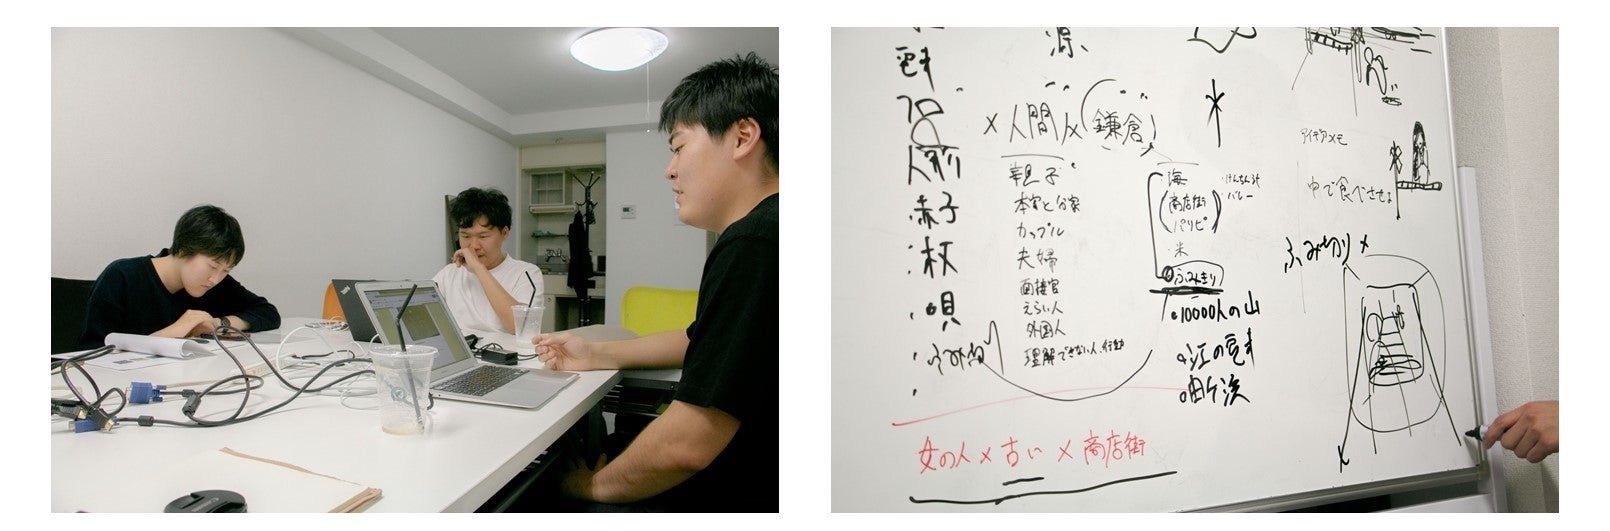 源
×人間×(鎌倉)
人形
赤子
枚
唄
親子
本家と分家
カップル
夫婦
面接官
えらい人
外国人
理解できない人、行動
海
商店街
パリピ
米
ふみきり
10000人の山
江の電
由ヶ浜
けんちん汁
バレー
木
アイデアメモ
中で食べさせよ
ふみ切り×
女の人×古い×商店街